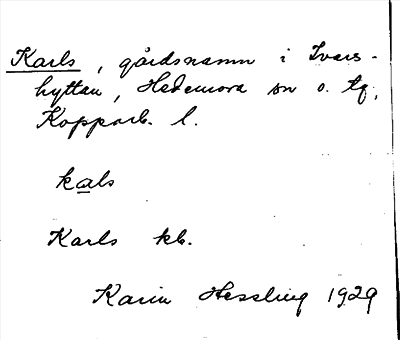 Karls, gårdsnamn i Ivars-
hyttan, Hedemora sn o. tg,
Kopparb. l.
kals
Karls kb.
Karin Hessling 1929